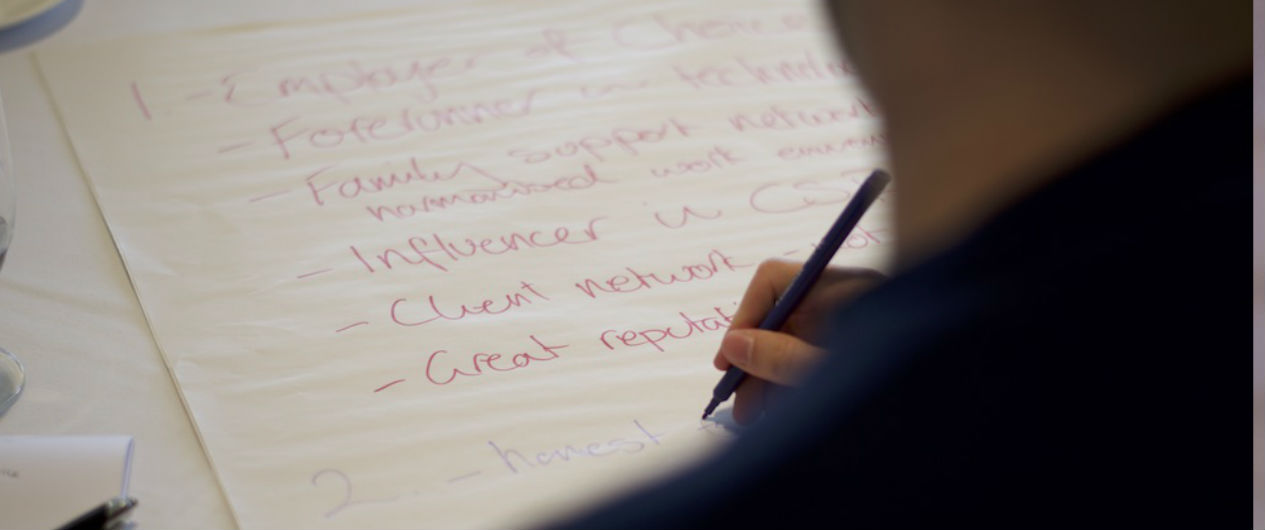 1. - Employer of Choice
- Forerunner in
- Family support network
harmonised work
- Influencer in CSR
- Client network - not
- Great reputat
2. - honest